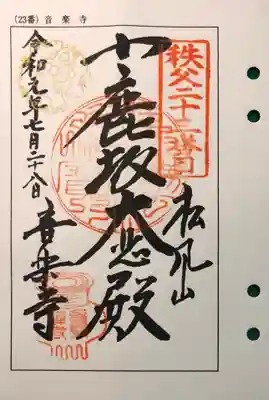 (23番) 音楽寺
秩父二十三番
松風山
小鹿坂大悲殿
令和元年七月二十八日
音楽寺